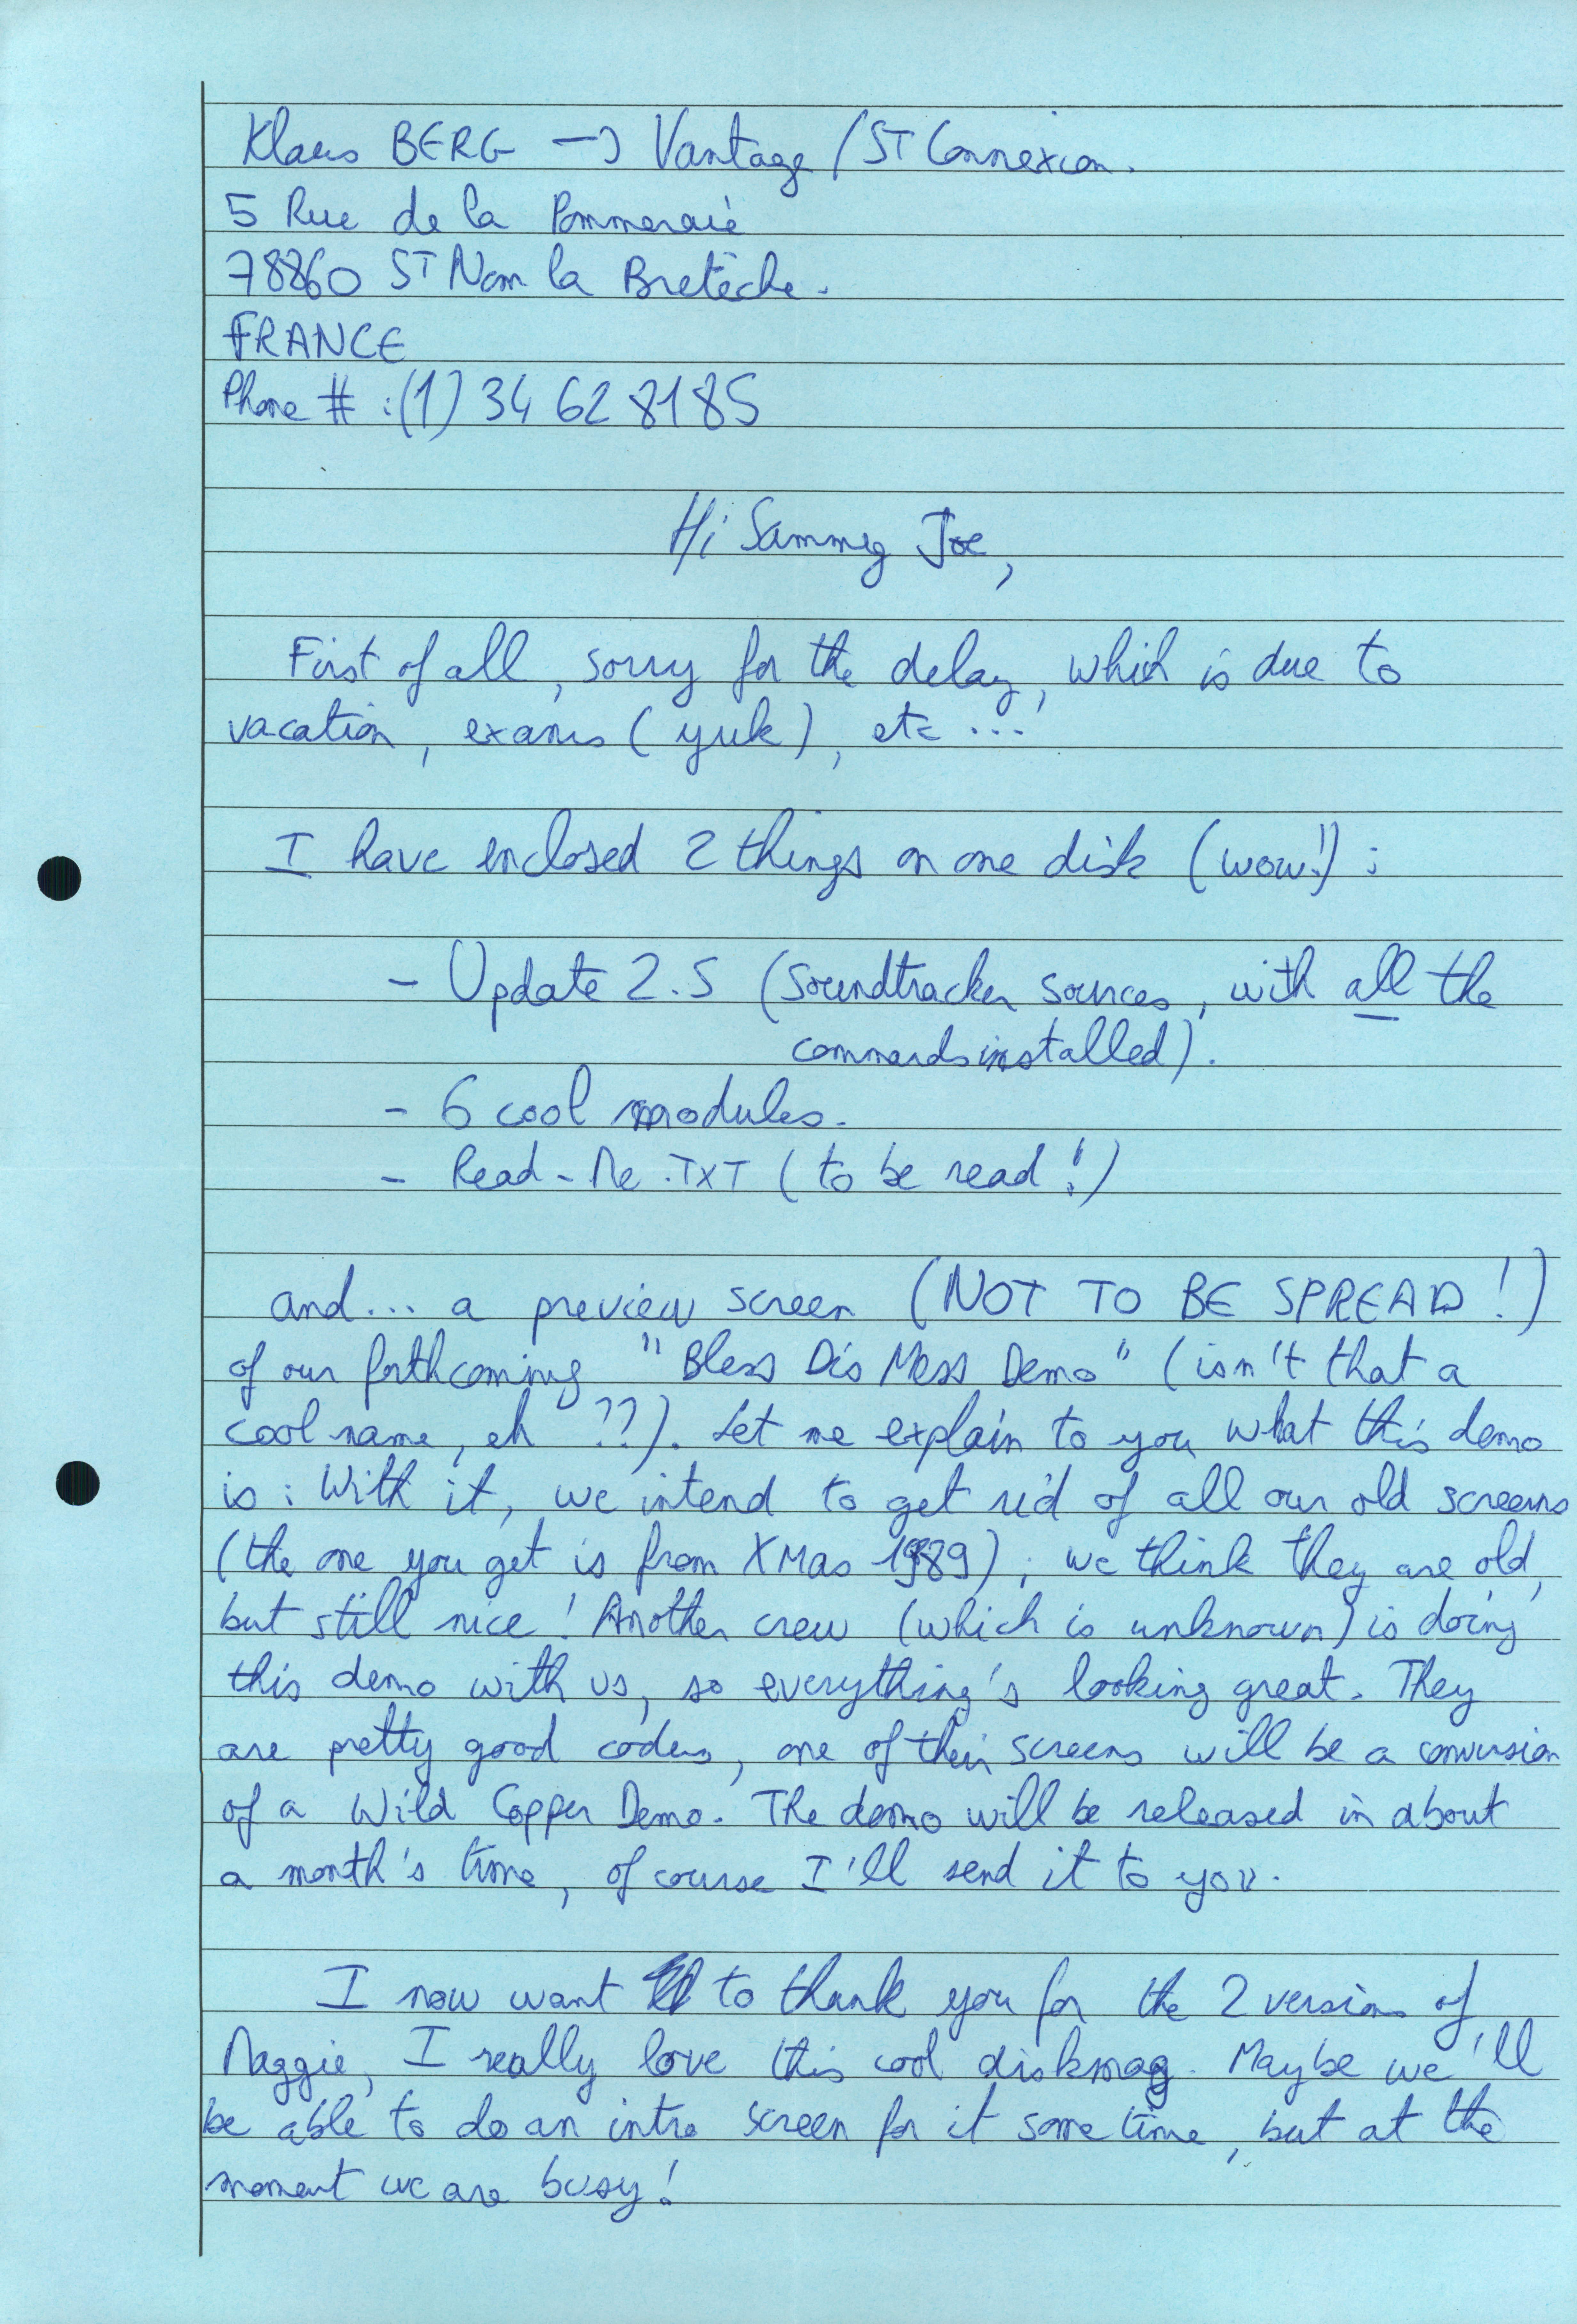 Klaus BERG → Vantage / ST Connexion.
5 Rue de la Pommeraie
78860 ST Nom la Bretèche.
FRANCE
Phone # : (1) 34 62 81 85
Hi Sammy Joe,
First of all, sorry for the delay, which is due to
vacation, exams (yuk), etc ...
I have enclosed 2 things on one disk (wow!) :
- Update 2.5 (Soundtracker sources, with all the
commands installed).
- 6 cool modules.
- Read-Me.TXT (to be read!)
and... a preview screen (NOT TO BE SPREAD!)
of our forthcoming "Bless Dis Mess Demo" (isn't that a
cool name, eh ??). Let me explain to you what this demo
is : With it, we intend to get rid of all our old screens
(the one you get is from XMas 1989) ; we think they are old,
but still nice! Another crew (which is unknown) is doing
this demo with us, so everything's looking great. They
are pretty good coders, one of their screens will be a conversion
of a Wild Copper Demo. The demo will be released in about
a month's time, of course I'll send it to you.
I now want to thank you for the 2 versions of
Maggie, I really love this cool diskmag. Maybe we'll
be able to do an intro screen for it some time, but at the
moment we are busy!